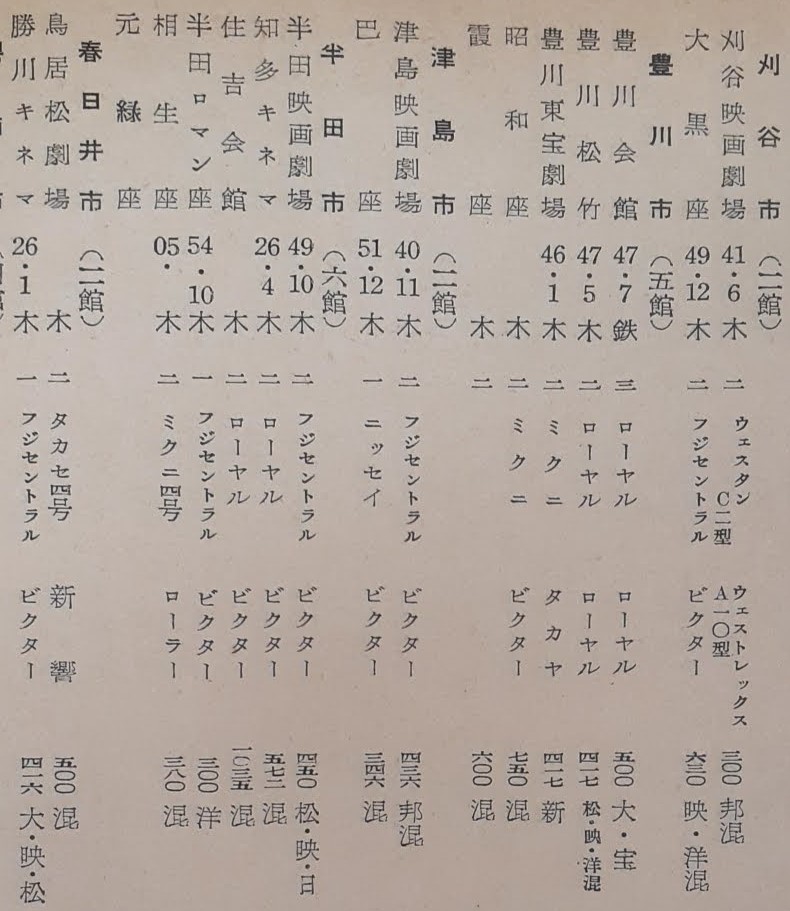 刈谷市(二館)
刈谷映画劇場 41・6 木 二 ウェスタンC二型 ウェストレックスA一〇型 三〇〇 邦混
大黒座 49・12 木 二 フジセントラル ビクター 六三〇 映・洋混
豊川市(五館)
豊川会館 47・7 鉄 三 ローヤル ローヤル 五〇〇 大・宝
豊川松竹 47・5 木 二 ローヤル ローヤル 四一七 松・映・洋混
豊川東宝劇場 46・1 木 二 ミクニ タカヤ 四一七 新
昭和座 木 二 ミクニ ビクター 七五〇 混
霞座 木 二 六〇〇 混
津島市(二館)
津島映画劇場 40・11 木 二 フジセントラル ビクター 四三六 邦混
巴座 51・12 木 一 ニッセイ ビクター 三四六 混
半田市(六館)
半田映画劇場 49・10 木 二 フジセントラル ビクター 四五〇 松・映・日
知多キネマ 26・4 木 二 ローヤル ビクター 五七二 混
住吉会館 木 二 ローヤル ビクター 一〇三五 混
半田ロマン座 54・10 木 一 フジセントラル ビクター 三〇〇 洋
相生座 05・ 木 二 ミクニ四号 ローラー 三八〇 混
元緑座
春日井市(二館)
鳥居松劇場 木 二 タカセ四号 新響 五〇〇 混
勝川キネマ 26・1 木 一 フジセントラル ビクター 四一六 大・映・松